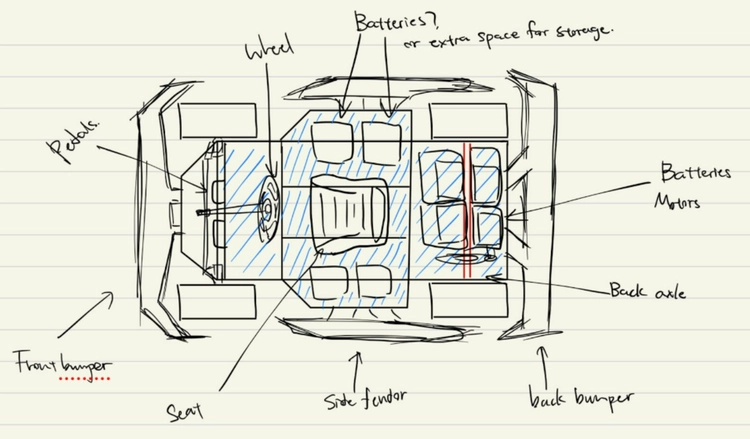 Batteries?
or extra space for storage.
Wheel
Pedals.
Batteries
Motors
Back axle
Front bumper
Seat
Side fendor
back bumper